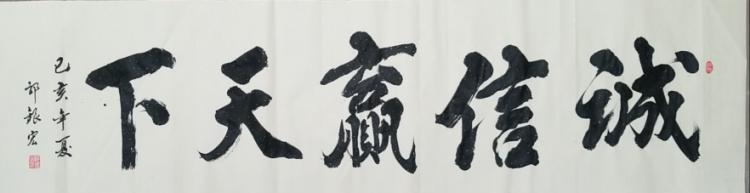 诚信赢天下
己亥年夏
郭银宏